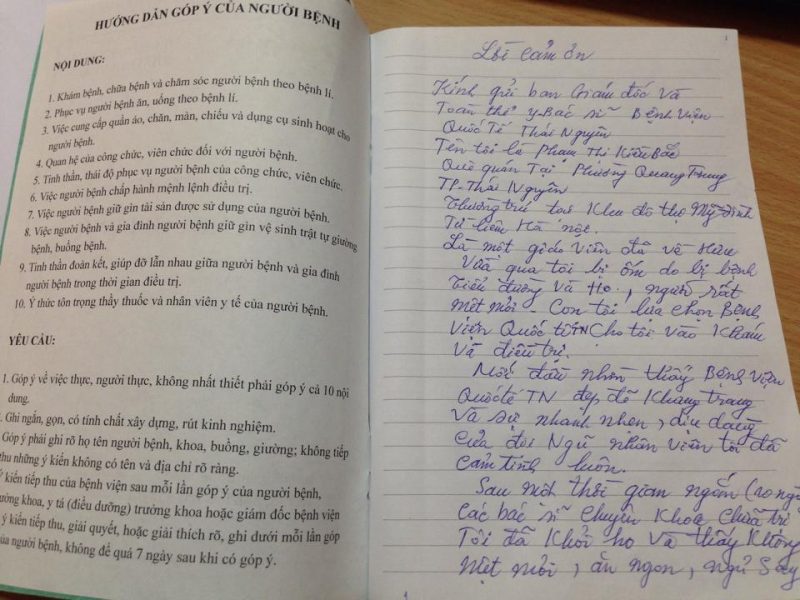 HƯỚNG DẪN GÓP Ý CỦA NGƯỜI BỆNH
NỘI DUNG:
1. Khám bệnh, chữa bệnh và chăm sóc người bệnh theo bệnh lí.
2. Phục vụ người bệnh ăn, uống theo bệnh lí.
3. Việc cung cấp quần áo, chăn, màn, chiếu và dụng cụ sinh hoạt cho
người bệnh.
4. Quan hệ của công chức, viên chức đối với người bệnh.
5. Tinh thần, thái độ phục vụ người bệnh của công chức, viên chức.
6. Việc người bệnh chấp hành mệnh lệnh điều trị.
7. Việc người bệnh giữ gìn tài sản được sử dụng của người bệnh.
8. Việc người bệnh và gia đình người bệnh giữ gìn vệ sinh trật tự giường
bệnh, buồng bệnh.
9. Tinh thần đoàn kết, giúp đỡ lẫn nhau giữa người bệnh và gia đình
người bệnh trong thời gian điều trị.
10. Ý thức tôn trọng thầy thuốc và nhân viên y tế của người bệnh.
YÊU CẦU:
1. Góp ý về việc thực, người thực, không nhất thiết phải góp ý cả 10 nội
dung.
Ghi ngắn, gọn, có tính chất xây dựng, rút kinh nghiệm.
Góp ý phải ghi rõ họ tên người bệnh, khoa, buồng, giường; không tiếp
thu những ý kiến không có tên và địa chỉ rõ ràng.
Ý kiến tiếp thu của bệnh viện sau mỗi lần góp ý của người bệnh,
trưởng khoa, y tá (điều dưỡng) trưởng khoa hoặc giám đốc bệnh viện
ý kiến tiếp thu, giải quyết, hoặc giải thích rõ, ghi dưới mỗi lần góp
của người bệnh, không để quá 7 ngày sau khi có góp ý.
1
Lời cảm ơn
Kính gửi ban Giám đốc và
Toàn thể y Bác sĩ Bệnh Viện
Quốc Tế Thái Nguyên
Tên tôi là Phạm Thị Kiều Bắc
Quê quán Tại Phường Quang Trung
TP Thái Nguyên
Thường trú tại Khu đô thị Mỹ Đình
Từ liêm Hà nội.
Là một giáo viên đã về hưu
Vừa qua tôi bị ốm do bị bệnh
Tiểu đường và Ho, người rất
mệt mỏi. Con tôi lựa chọn Bệnh
Viện Quốc tế TN Cho tôi vào Khám
Và điều trị.
Mới đầu nhìn thấy Bệnh Viện
Quốc tế TN đẹp đẽ Khang trang
Và sự nhanh nhẹn, dịu dàng
Của đội Ngũ nhân viên tôi đã
Cảm tình luôn.
Sau một thời gian ngắn (10 ng
Các bác sĩ Chuyên Khoa Chữa trị
Tôi đã Khỏi ho Và thấy Không
Mệt mỏi, ăn ngon, ngủ Say